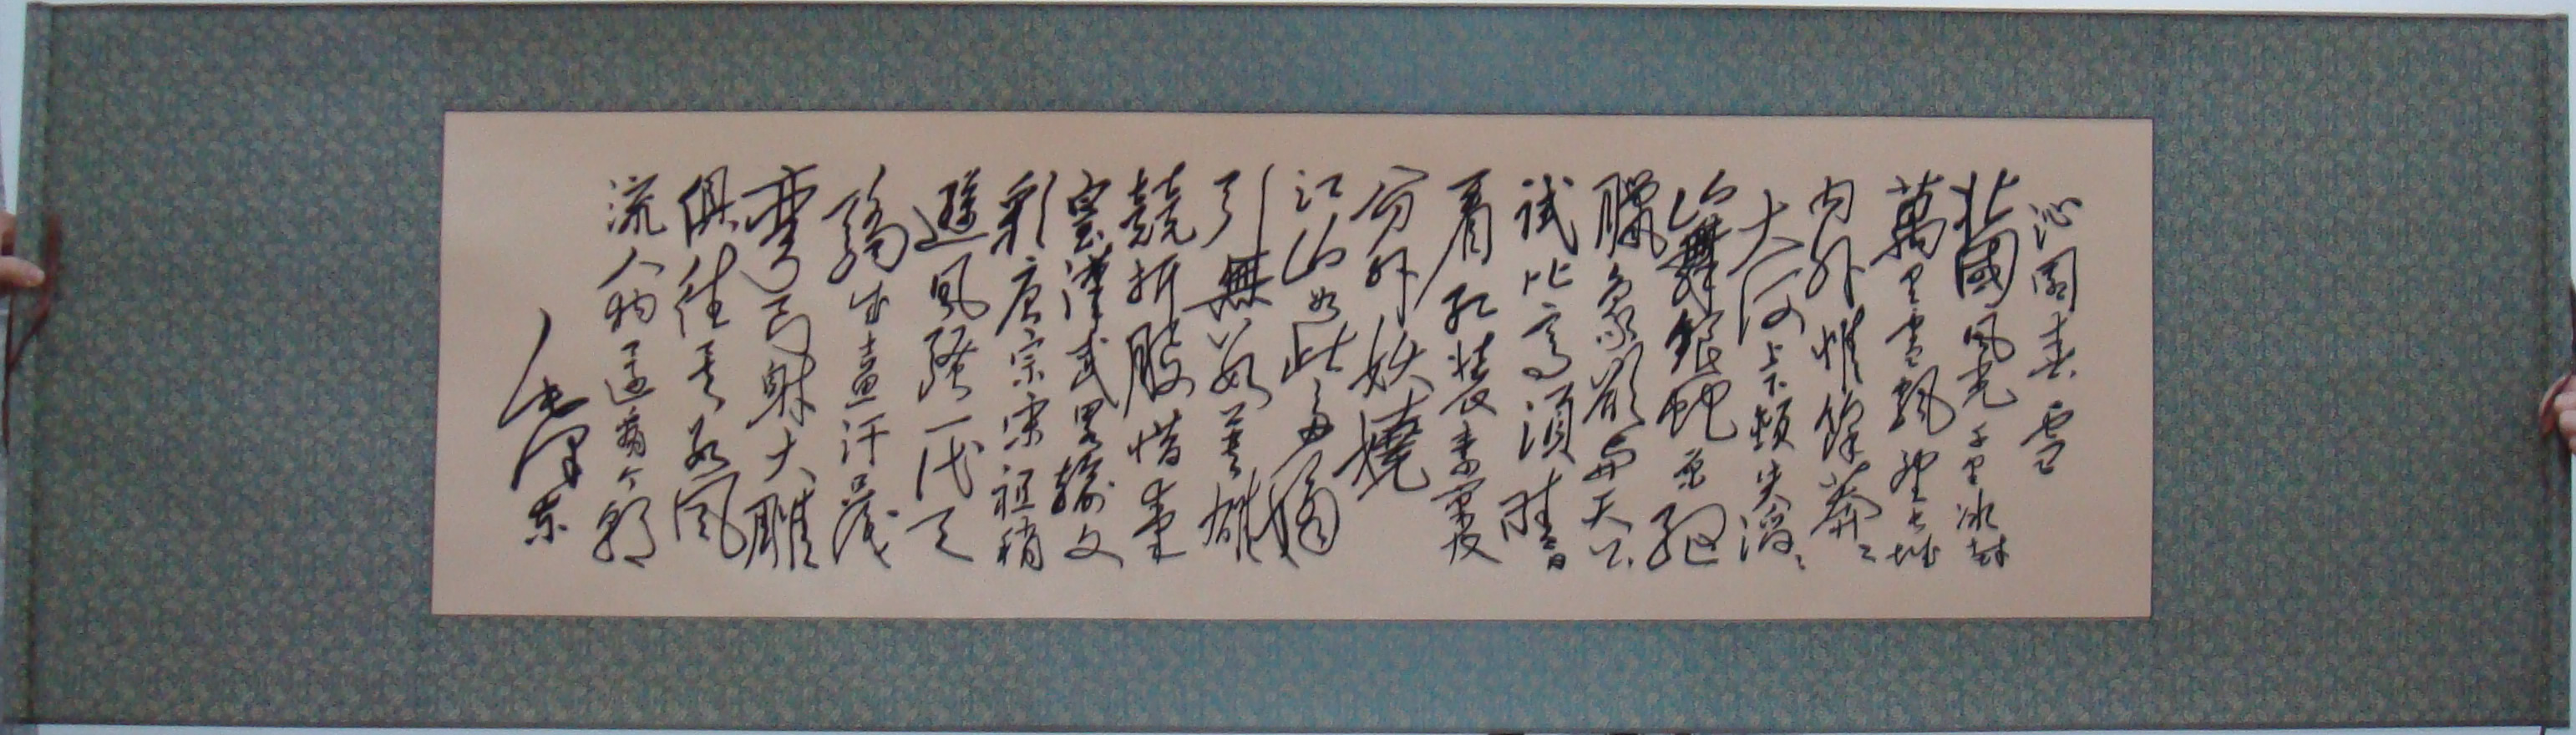 沁園春 雪
北國風光千里冰封
萬里雪飄望長城
内外惟餘莽〻
大河上下頓失滔〻
山舞銀蛇原驰
臘象欲與天公
試比高須晴日
看红裝素裹
分外妖嬈
江山如此多嬌
引無數英雄
競折腰惜秦
皇漢武略輸文
彩唐宗宋祖稍
遜風騷一代天
驕成吉思汗只識
彎弓射大雕
俱往矣數風
流人物還看今朝
毛泽东